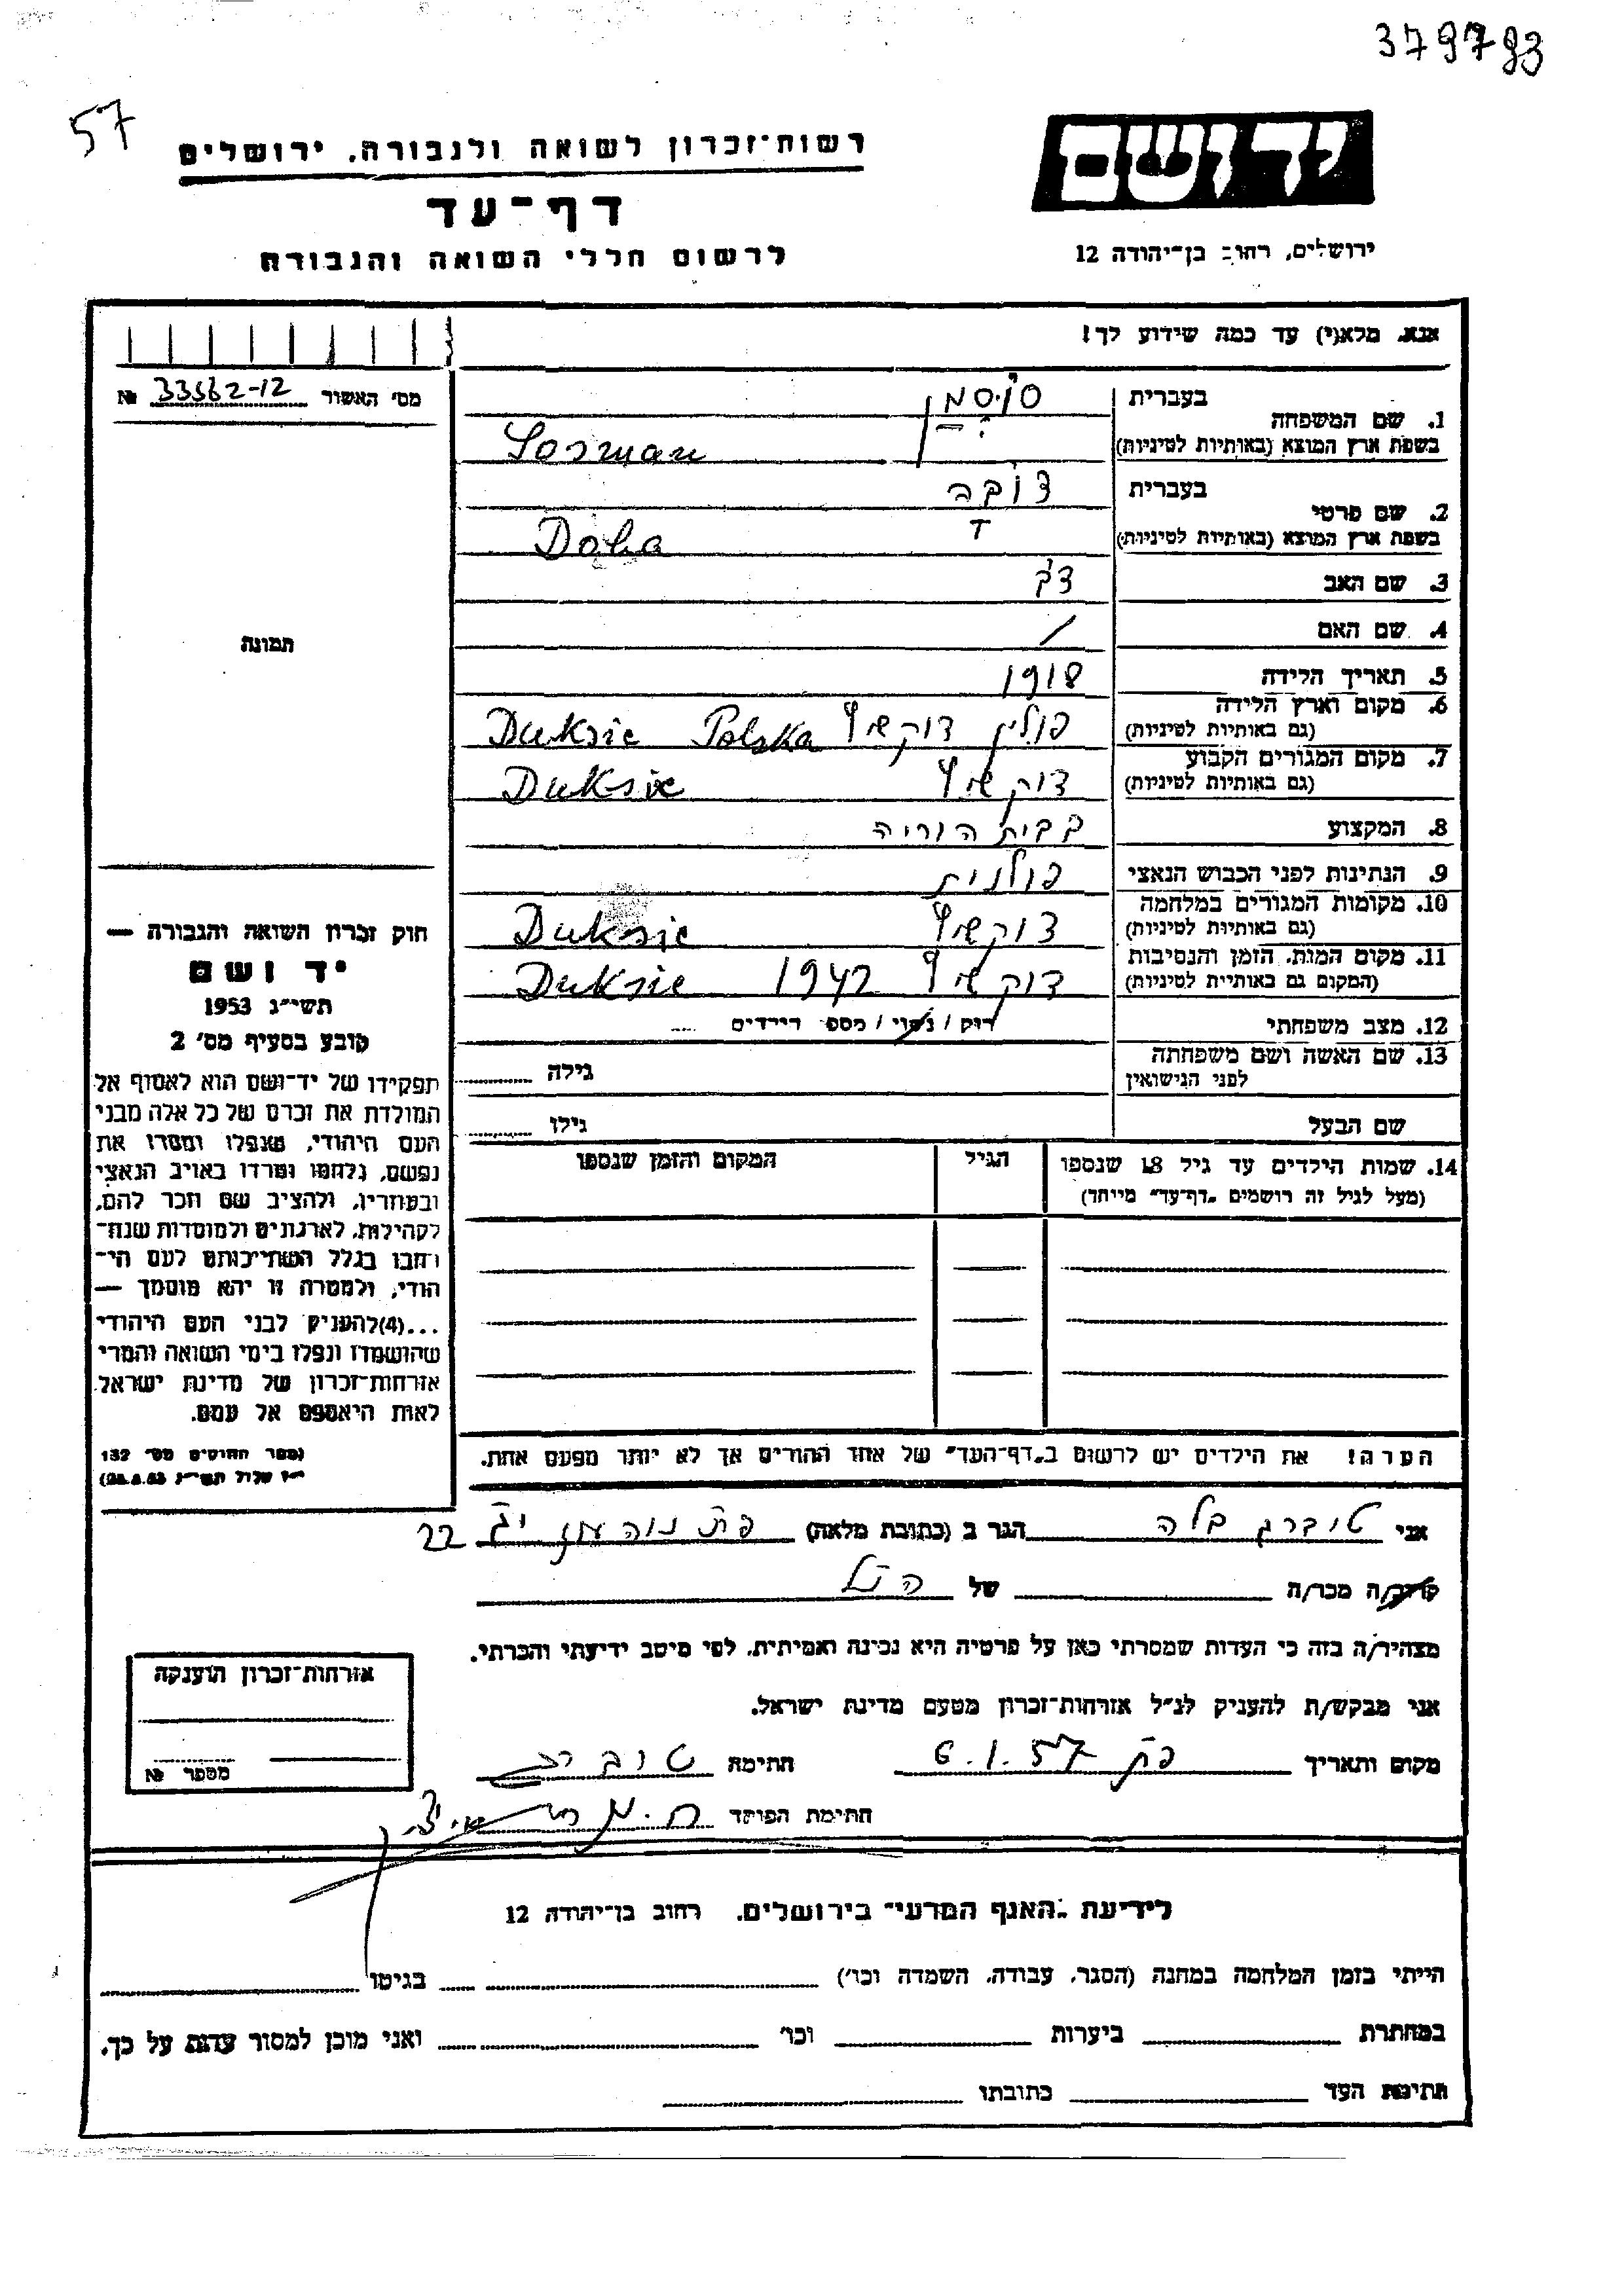 379793
57
יד ושם
רשות־זכרון לשואה ולגבורה, ירושלים
דף־עד
לרשום חללי השואה והגבורה
ירושלים, רחוב בן־יהודה 12
אנא, מלא(י) עד כמה שידוע לך!
מס' האשור 33562-12 №
תמונה
1. שם המשפחה
בעברית סוסמן
בשפת ארץ המוצא (באותיות לטיניות) Sosman
2. שם פרטי
בעברית דובה
בשפת ארץ המוצא (באותיות לטיניות) Doba
3. שם האב דב
4. שם האם /
5. תאריך הלידה 1918
6. מקום וארץ הלידה
(גם באותיות לטיניות) פולין דוקשיץ Polska Duksic
7. מקום המגורים הקבוע
(גם באותיות לטיניות) דוקשיץ Duksic
8. המקצוע בבית הוריה
9. הנתינות לפני הכבוש הנאצי פולנית
10. מקומות המגורים במלחמה
(גם באותיות לטיניות) דוקשיץ Duksic
11. מקום המות, הזמן והנסיבות
(המקום גם באותיות לטיניות) דוקשיץ 1942 Duksic
12. מצב משפחתי רוק / נשוי / מספר הילדים ....
13. שם האשה ושם משפחתה
לפני הנישואין
גילה
שם הבעל גילו
14. שמות הילדים עד גיל 18 שנספו
(מעל לגיל זה רושמים „דף־עד" מיוחד)
הגיל
המקום והזמן שנספו
הערה! את הילדים יש לרשום ב„דף־העד" של אחד ההורים אך לא יותר מפעם אחת.
חוק זכרון השואה והגבורה —
יד ושם
תשי"ג 1953
קובע בסעיף מס' 2
תפקידו של יד־ושם הוא לאסוף אל
המולדת את זכרם של כל אלה מבני
העם היהודי, שנפלו ומסרו את
נפשם, נלחמו ומרדו באויב הנאצי
ובעוזריו, ולהציב שם וזכר להם,
לקהילות, לארגונים ולמוסדות שנח־
רבו בגלל השתייכותם לעם הי־
הודי, ולמטרה זו יהא מוסמך —
...(4)להעניק לבני העם היהודי
שהושמדו ונפלו בימי השואה והמרי
אזרחות־זכרון של מדינת ישראל
לאות היאספם אל עמם.
(ספר החוקים מס' 132
י"ז אלול תשי"ג 28.8.53)
אני טוברג בלה הגר ב (כתובת מלאה) פת 22
קרוב/ה מכר/ה של הנ"ל
מצהיר/ה בזה כי העדות שמסרתי כאן על פרטיה היא נכונה ואמיתית, לפי מיטב ידיעתי והכרתי.
אני מבקש/ת להעניק לנ"ל אזרחות־זכרון מטעם מדינת ישראל.
מקום ותאריך פת 6.1.57 חתימה
חתימת הפוקד
אזרחות־זכרון הוענקה
מספר №
לידיעת „האגף המדעי" בירושלים, רחוב בן־יהודה 12
הייתי בזמן המלחמה במחנה (הסגר, עבודה, השמדה וכו') בגיטו
במחתרת ביערות וכו' ואני מוכן למסור עדות על כך.
חתימת העד כתובתו